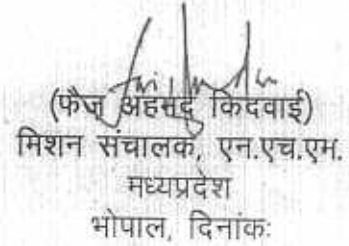 (फैज अहमद किदवाई)
मिशन संचालक, एन.एच.एम.
मध्यप्रदेश
भोपाल, दिनांकः